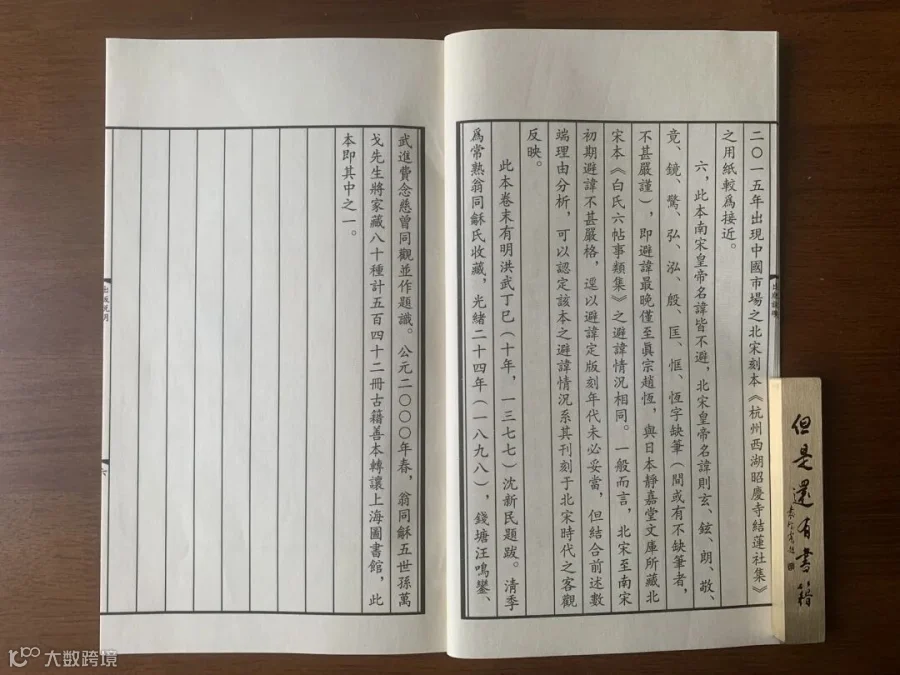 二〇一五年出現中國市場之北宋刻本《杭州西湖昭慶寺結蓮社集》
之用紙較爲接近。
六，此本南宋皇帝名諱皆不避，北宋皇帝名諱則玄、鉉、朗、敬、
竟、鏡、驚、弘、泓、殷、匡、恇、恆字缺筆（間或有不缺筆者，
不甚嚴謹），即避諱最晚僅至眞宗趙恆，與日本靜嘉堂文庫所藏北
宋本《白氏六帖事類集》之避諱情況相同。一般而言，北宋至南宋
初期避諱不甚嚴格，逕以避諱定版刻年代未必妥當，但結合前述數
端理由分析，可以認定該本之避諱情況系其刊刻于北宋時代之客觀
反映。
此本卷末有明洪武丁巳（十年，一三七七）沈新民題跋。清季
爲常熟翁同龢氏收藏，光緒二十四年（一八九八），錢塘汪鳴鑾、
武進費念慈曾同觀並作題識。公元二〇〇〇年春，翁同龢五世孫萬
戈先生將家藏八十種計五百四十二冊古籍善本轉讓上海圖書館，此
本即其中之一。
出版説明
六
但是還有書籍
大数跨境